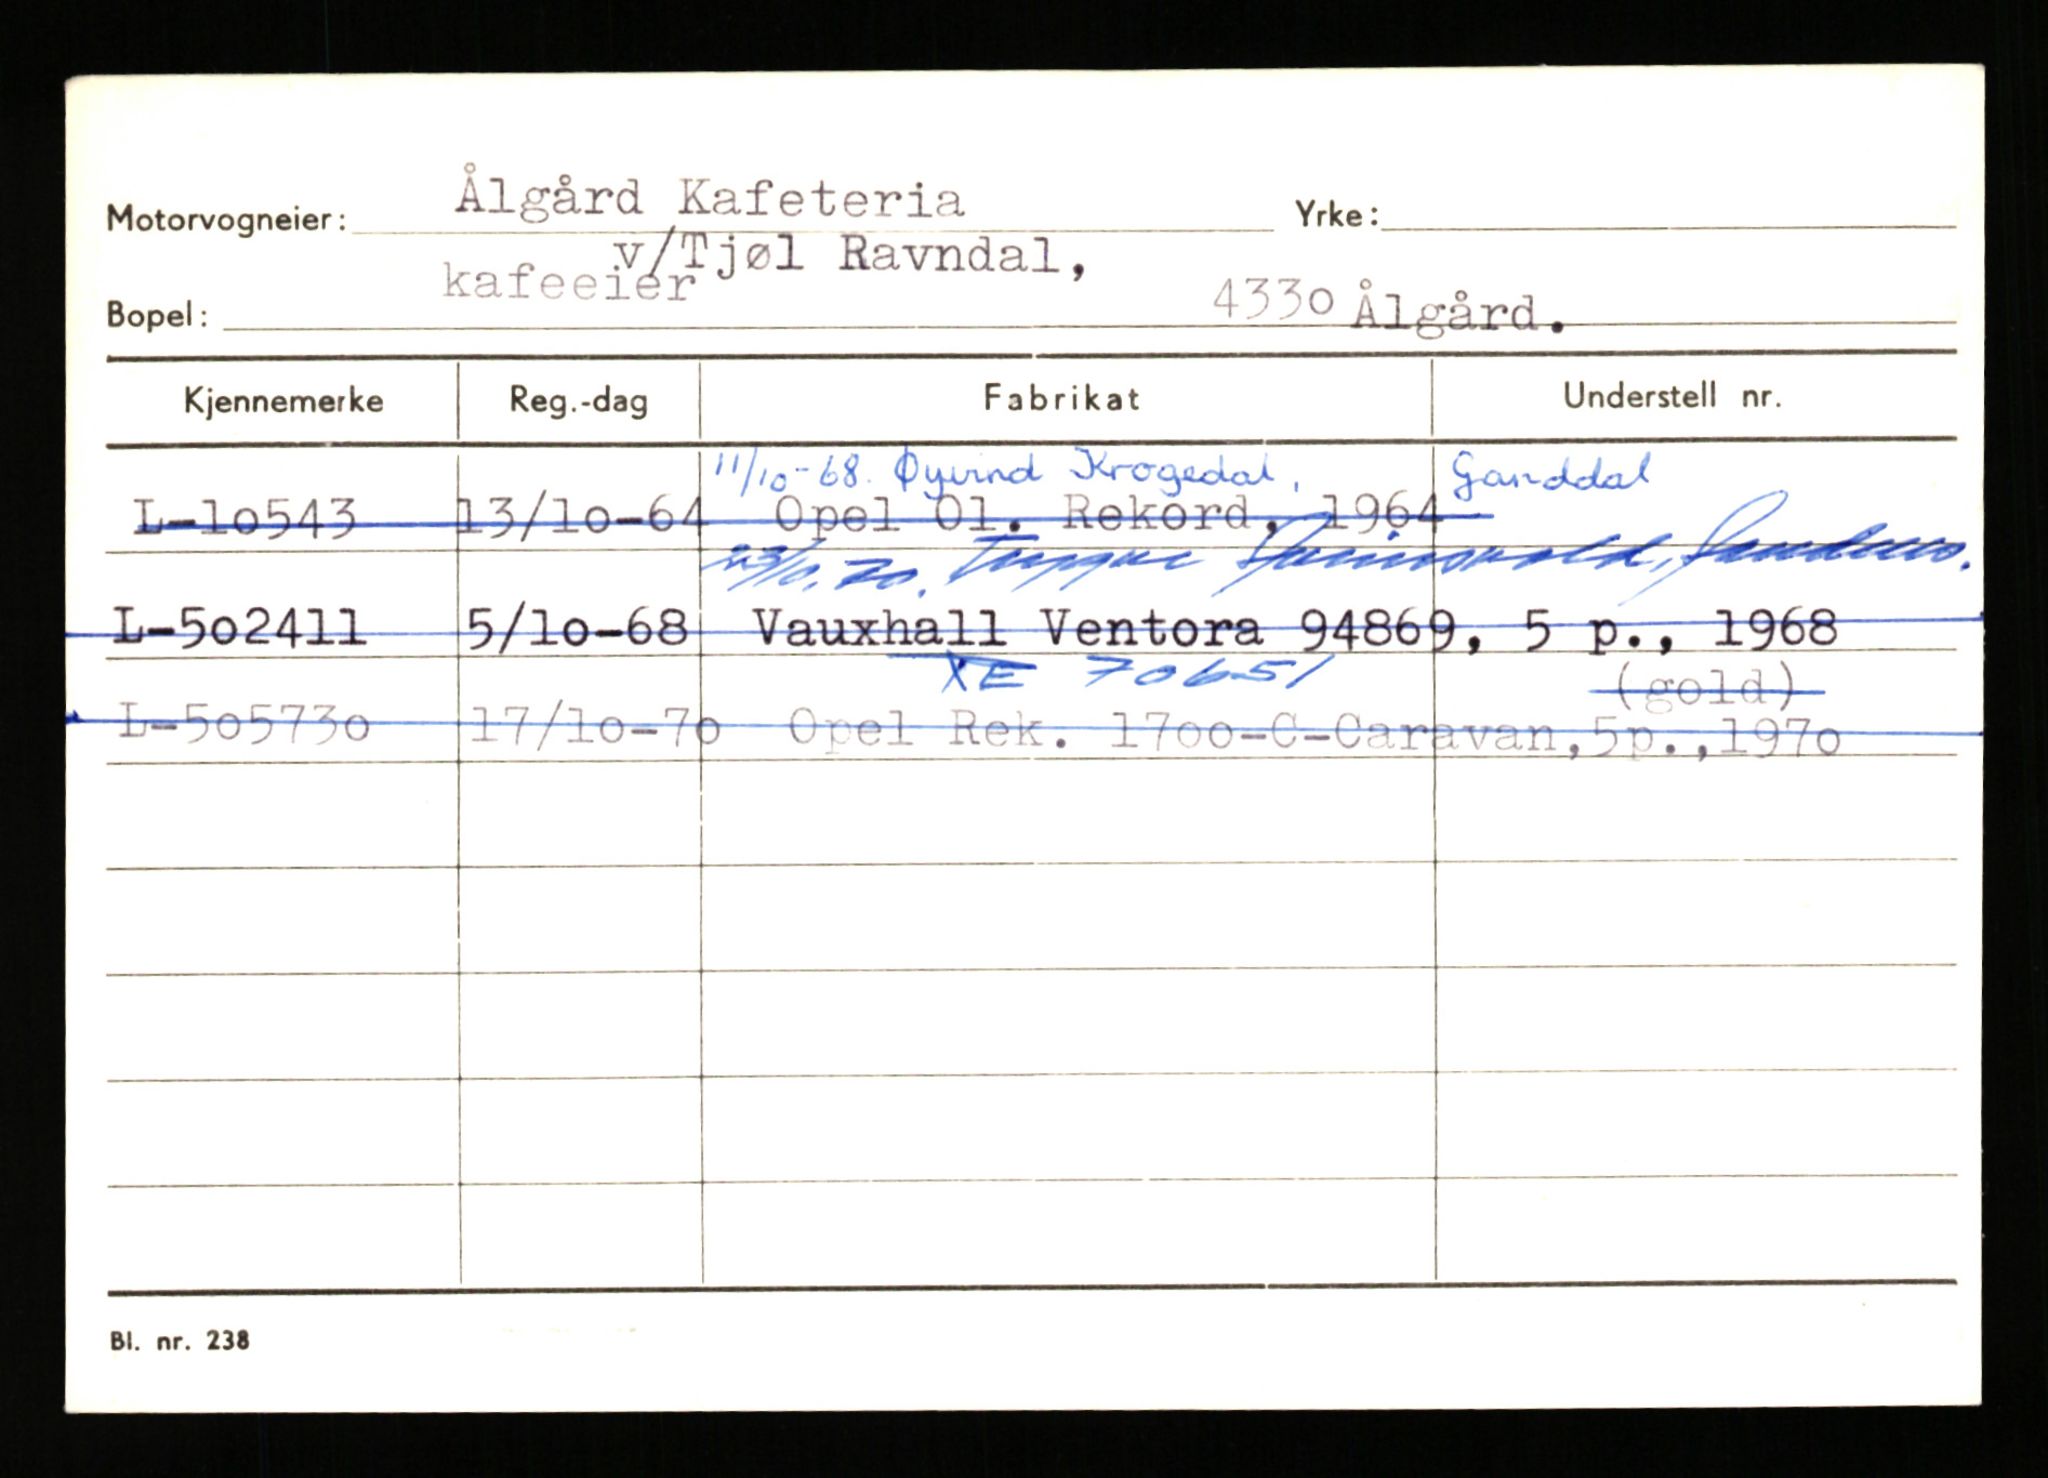 Motorvogneier: Ålgård Kafeteria Yrke:
v/Tjøl Ravndal,
kafeeier
Bopel: 4330 Ålgård.
Kjennemerke Reg.-dag Fabrikat Understell nr.
11/10-68. Øyvind Krogedal, Ganddal
L-10543 13/10-64 Opel Ol. Rekord, 1964
L-502411 5/10-68 Vauxhall Ventora 94869, 5 p., 1968
XE 70651 (gold)
L-505730 17/10-70 Opel Rek. 1700-C-Caravan,5p.,1970
Bl. nr. 238